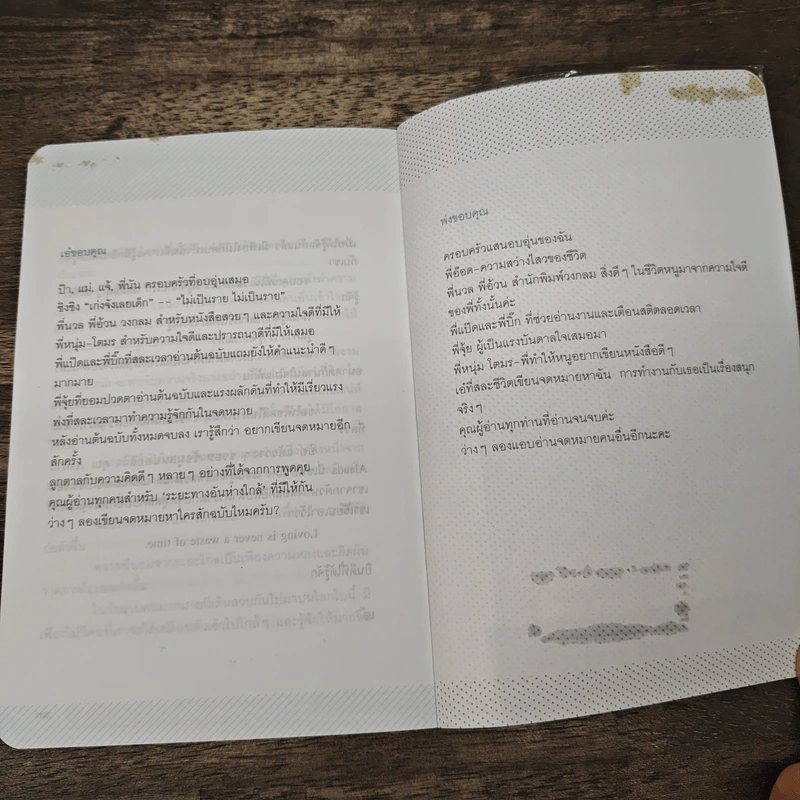 เอ๋ขอบคุณ
ป๊า, แม่, แจ้, พี่นัน ครอบครัวที่อบอุ่นเสมอ
ชิงชิง “เก่งจังเลยเด็ก” -- “ไม่เป็นราย ไม่เป็นราย”
พี่นวล พี่อ้วน วงกลม สำหรับหนังสือสวยๆ และความใจดีที่มีให้
พี่หนุ่ม-โตมร สำหรับความใจดีและปรารถนาดีที่มีให้เสมอ
พี่แป๊ดและพี่บิ๊กที่สละเวลาอ่านต้นฉบับแถมยังให้คำแนะนำดีๆ
มากมาย
พี่จุ้ยที่ยอมปวดตาอ่านต้นฉบับและแรงผลักดันที่ทำให้มีเรี่ยวแรง
พ่งที่สละเวลามาทำความรู้จักกันในจดหมาย
หลังอ่านต้นฉบับทั้งหมดจบลง เรารู้สึกว่า อยากเขียนจดหมายอีก
สักครั้ง
ลูกตาลกับความคิดดีๆ หลายๆ อย่างที่ได้จากการพูดคุย
คุณผู้อ่านทุกคนสำหรับ ‘ระยะทางอันห่างใกล้’ ที่มีให้กัน
ว่างๆ ลองเขียนจดหมายหาใครสักฉบับไหมครับ?
พ่งขอบคุณ
ครอบครัวแสนอบอุ่นของฉัน
พี่อ๊อด-ความสว่างไสวของชีวิต
พี่นวล พี่อ้วน สำนักพิมพ์วงกลม สิ่งดีๆ ในชีวิตหนูมาจากความใจดี
ของพี่ทั้งนั้นค่ะ
พี่แป๊ดและพี่บิ๊ก ที่ช่วยอ่านงานและเตือนสติตลอดเวลา
พี่จุ้ย ผู้เป็นแรงบันดาลใจเสมอมา
พี่หนุ่ม โตมร-พี่ทำให้หนูอยากเขียนหนังสือดีๆ
เอ๋ที่สละชีวิตเขียนจดหมายหาฉัน การทำงานกับเธอเป็นเรื่องสนุก
จริงๆ
คุณผู้อ่านทุกท่านที่อ่านจนจบค่ะ
ว่างๆ ลองแอบอ่านจดหมายคนอื่นอีกนะคะ